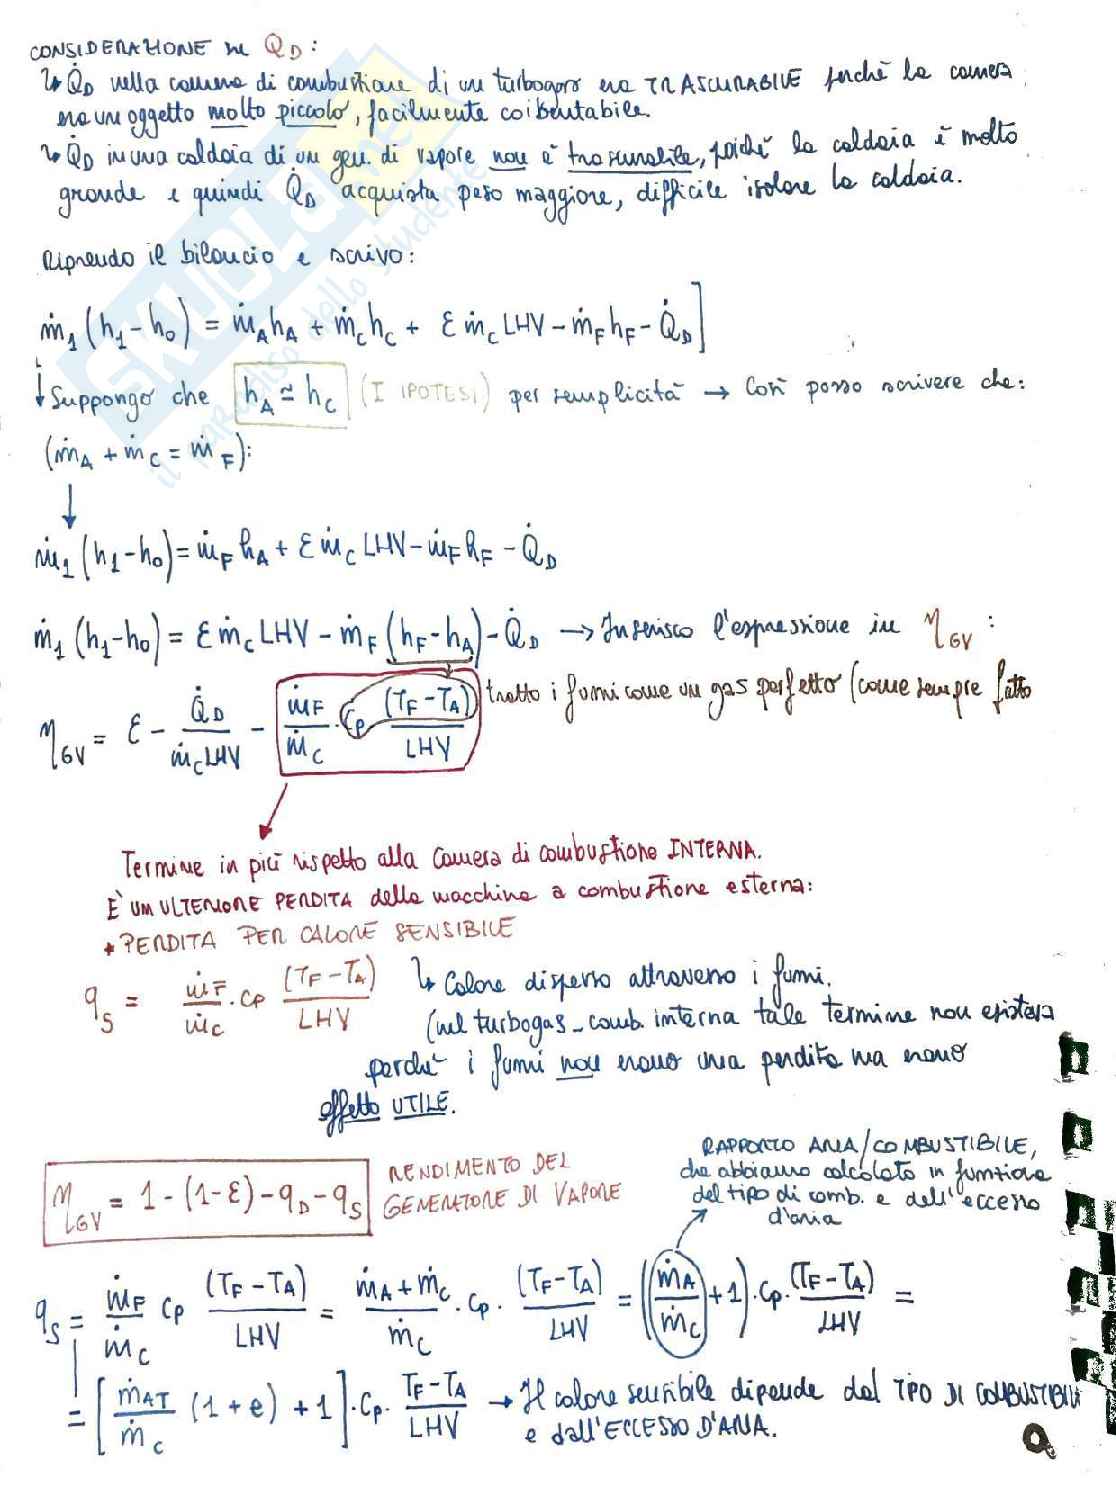 CONSIDERAZIONE su Q̇_D:
↳ Q̇_D nella camera di combustione di un turbogas era TRASCURABILE perchè la camera
era un oggetto molto piccolo, facilmente coibentabile.
↳ Q̇_D in una caldaia di un gen. di vapore non è trascurabile, poiché la caldaia è molto
grande e quindi Q̇_D acquista peso maggiore, difficile isolare la caldaia.
Riprendo il bilancio e scrivo:
ṁ_1 (h_1 - h_0) = ṁ_A h_A + ṁ_C h_C + ε ṁ_C LHV - ṁ_F h_F - Q̇_D ]
↓ Suppongo che h_A ≃ h_C (I IPOTESI) per semplicità → Così posso scrivere che:
(ṁ_A + ṁ_C = ṁ_F):
↓
ṁ_1 (h_1 - h_0) = ṁ_F h_A + ε ṁ_C LHV - ṁ_F h_F - Q̇_D
ṁ_1 (h_1 - h_0) = ε ṁ_C LHV - ṁ_F (h_F - h_A) - Q̇_D → Inserisco l'espressione in η_GV:
tratto i fumi come un gas perfetto (come sempre fatto
η_GV = ε - Q̇_D / ṁ_C LHV - ṁ_F / ṁ_C · Cp (T_F - T_A) / LHV
Termine in più rispetto alla camera di combustione INTERNA.
È UN ULTERIORE PERDITA della macchina a combustione esterna:
* PERDITA PER CALORE SENSIBILE
q_S = ṁ_F / ṁ_C · Cp (T_F - T_A) / LHV ↳ Calore disperso attraverso i fumi.
(nel turbogas - comb. interna tale termine non esisteva
perchè i fumi non erano una perdita ma erano
effetto UTILE.
RAPPORTO ARIA/COMBUSTIBILE,
che abbiamo calcolato in funzione
del tipo di comb. e dell'eccesso
d'aria
η_GV = 1 - (1 - ε) - q_D - q_S
RENDIMENTO DEL
GENERATORE DI VAPORE
q_S = ṁ_F / ṁ_C Cp (T_F - T_A) / LHV = ṁ_A + ṁ_C / ṁ_C · Cp · (T_F - T_A) / LHV = (ṁ_A / ṁ_C + 1) · Cp · (T_F - T_A) / LHV =
= [ ṁ_AT / ṁ_C (1 + e) + 1 ] · Cp · T_F - T_A / LHV → Il calore sensibile dipende dal TIPO DI COMBUSTIBILE
e dall'ECCESSO D'ARIA.
SKUOLA.net
il paradiso dello studente